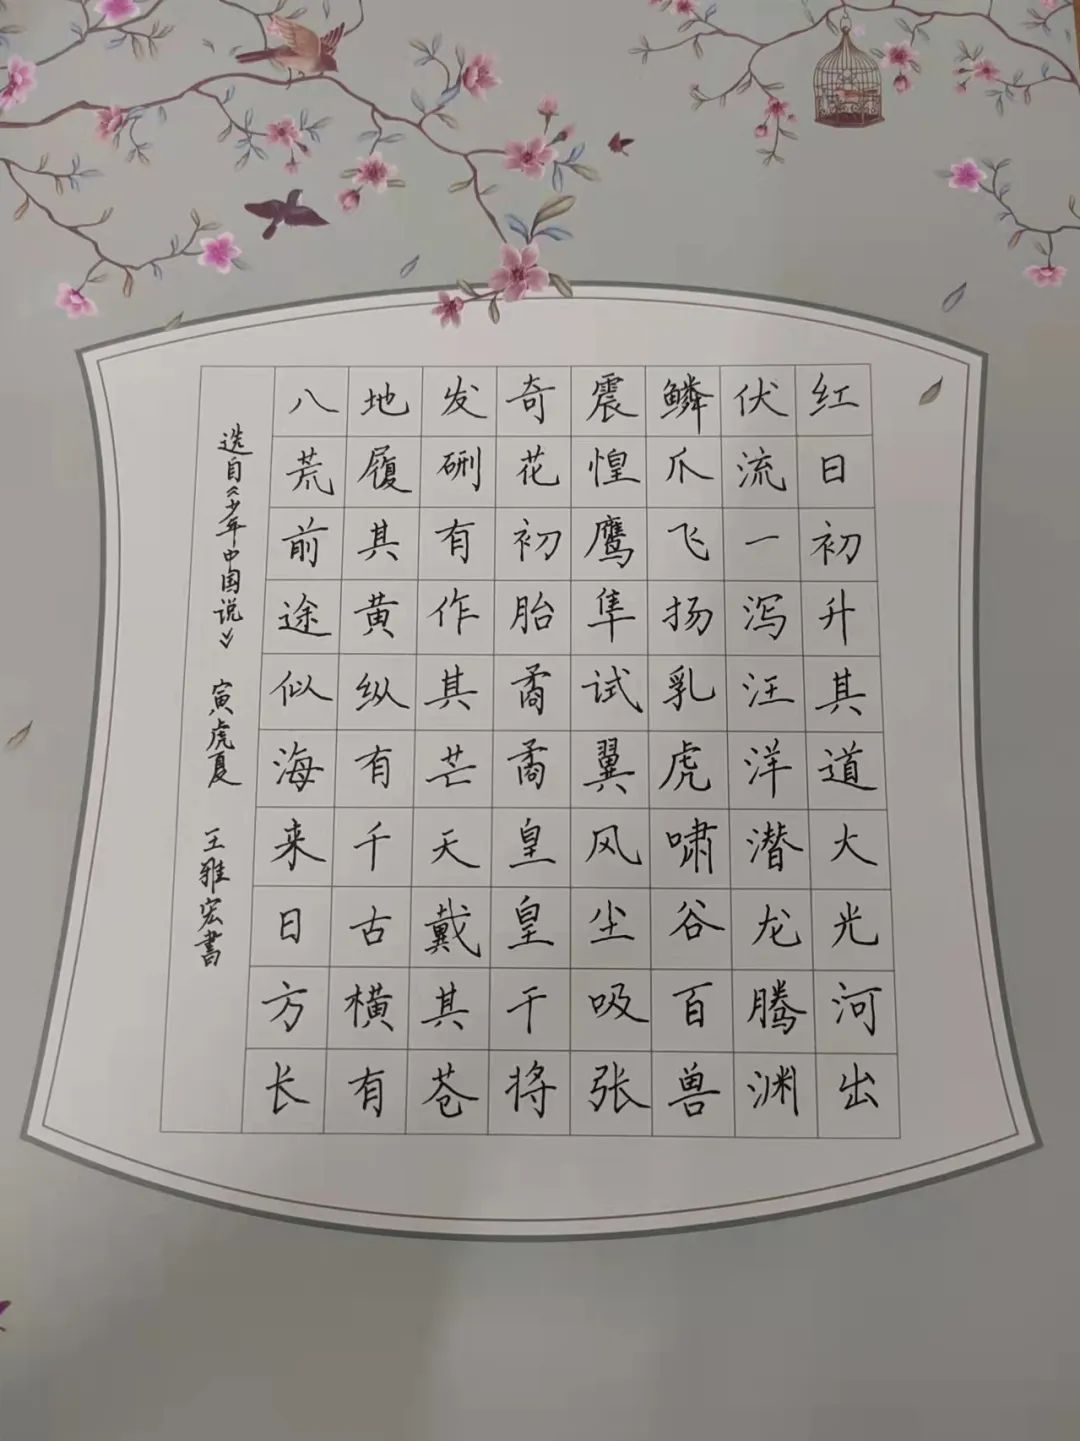 红日初升其道大光河出
伏流一泻汪洋潜龙腾渊
鳞爪飞扬乳虎啸谷百兽
震惶鹰隼试翼风尘吸张
奇花初胎矞矞皇皇干将
发硎有作其芒天戴其苍
地履其黄纵有千古横有
八荒前途似海来日方长
选自《少年中国说》 寅虎夏 王雅宏書